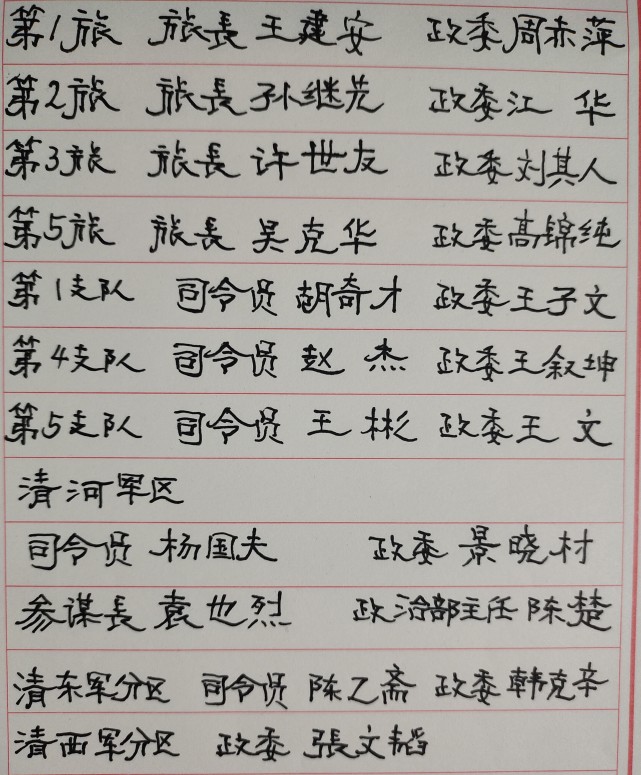 第1旅 旅長王建安 政委周赤萍
第2旅 旅長孙继先 政委江 华
第3旅 旅長许世友 政委刘其人
第5旅 旅長吴克华 政委高锦纯
第1支队 司令员胡奇才 政委王子文
第4支队 司令员赵 杰 政委王叙坤
第5支队 司令员王 彬 政委王 文
清河军区
司令员 杨国夫 政委 景晓材
参谋長袁也烈 政治部主任陈楚
清东军分区 司令员 陈乙斋 政委韩克辛
清西军分区 政委 張文韬